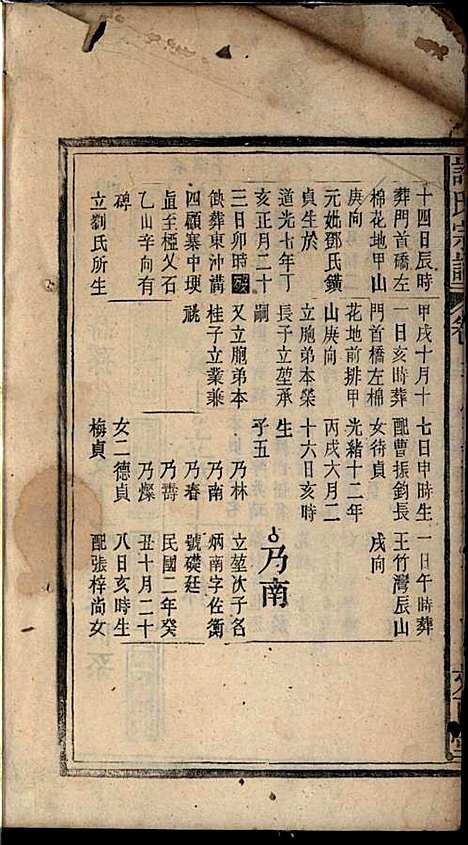 氏宗譜 卷
十四日辰時
葬門首橋左
棉花地甲山
庚向
元妣鄧氏鑛
貞生於
道光七年丁
亥正月二十
三日卯時歿
葬東沖溝
四顧寨中埂
至極乂石
乙山辛向有
碑
立劉氏所生
甲戌十月十
一日亥時葬
門首橋左棉
花地前排甲
山庚向
立胞弟本榮
長子立堃承
嗣
又立胞弟本
桂子立業兼
祧
七日申時生
配曹振鈞長
女待貞
光緒十二年
丙戌六月二
十六日亥時
生
子五
乃林
乃南
乃春
乃壽
乃燦
女二德貞
梅貞
一日午時葬
王竹灣辰山
戌向
乃南
立堃次子名
炳南字佐衡
號礎廷
民國二年癸
丑十月二十
八日亥時生
配張梓尚女